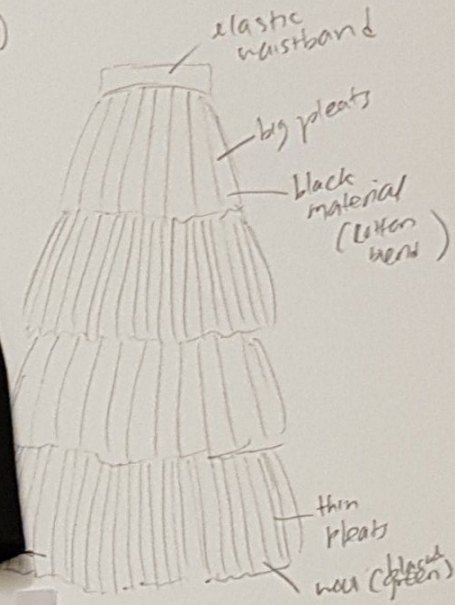 )
elastic
waistband
big pleats
black
material
(cotton
blend)
thin
pleats
(
green)